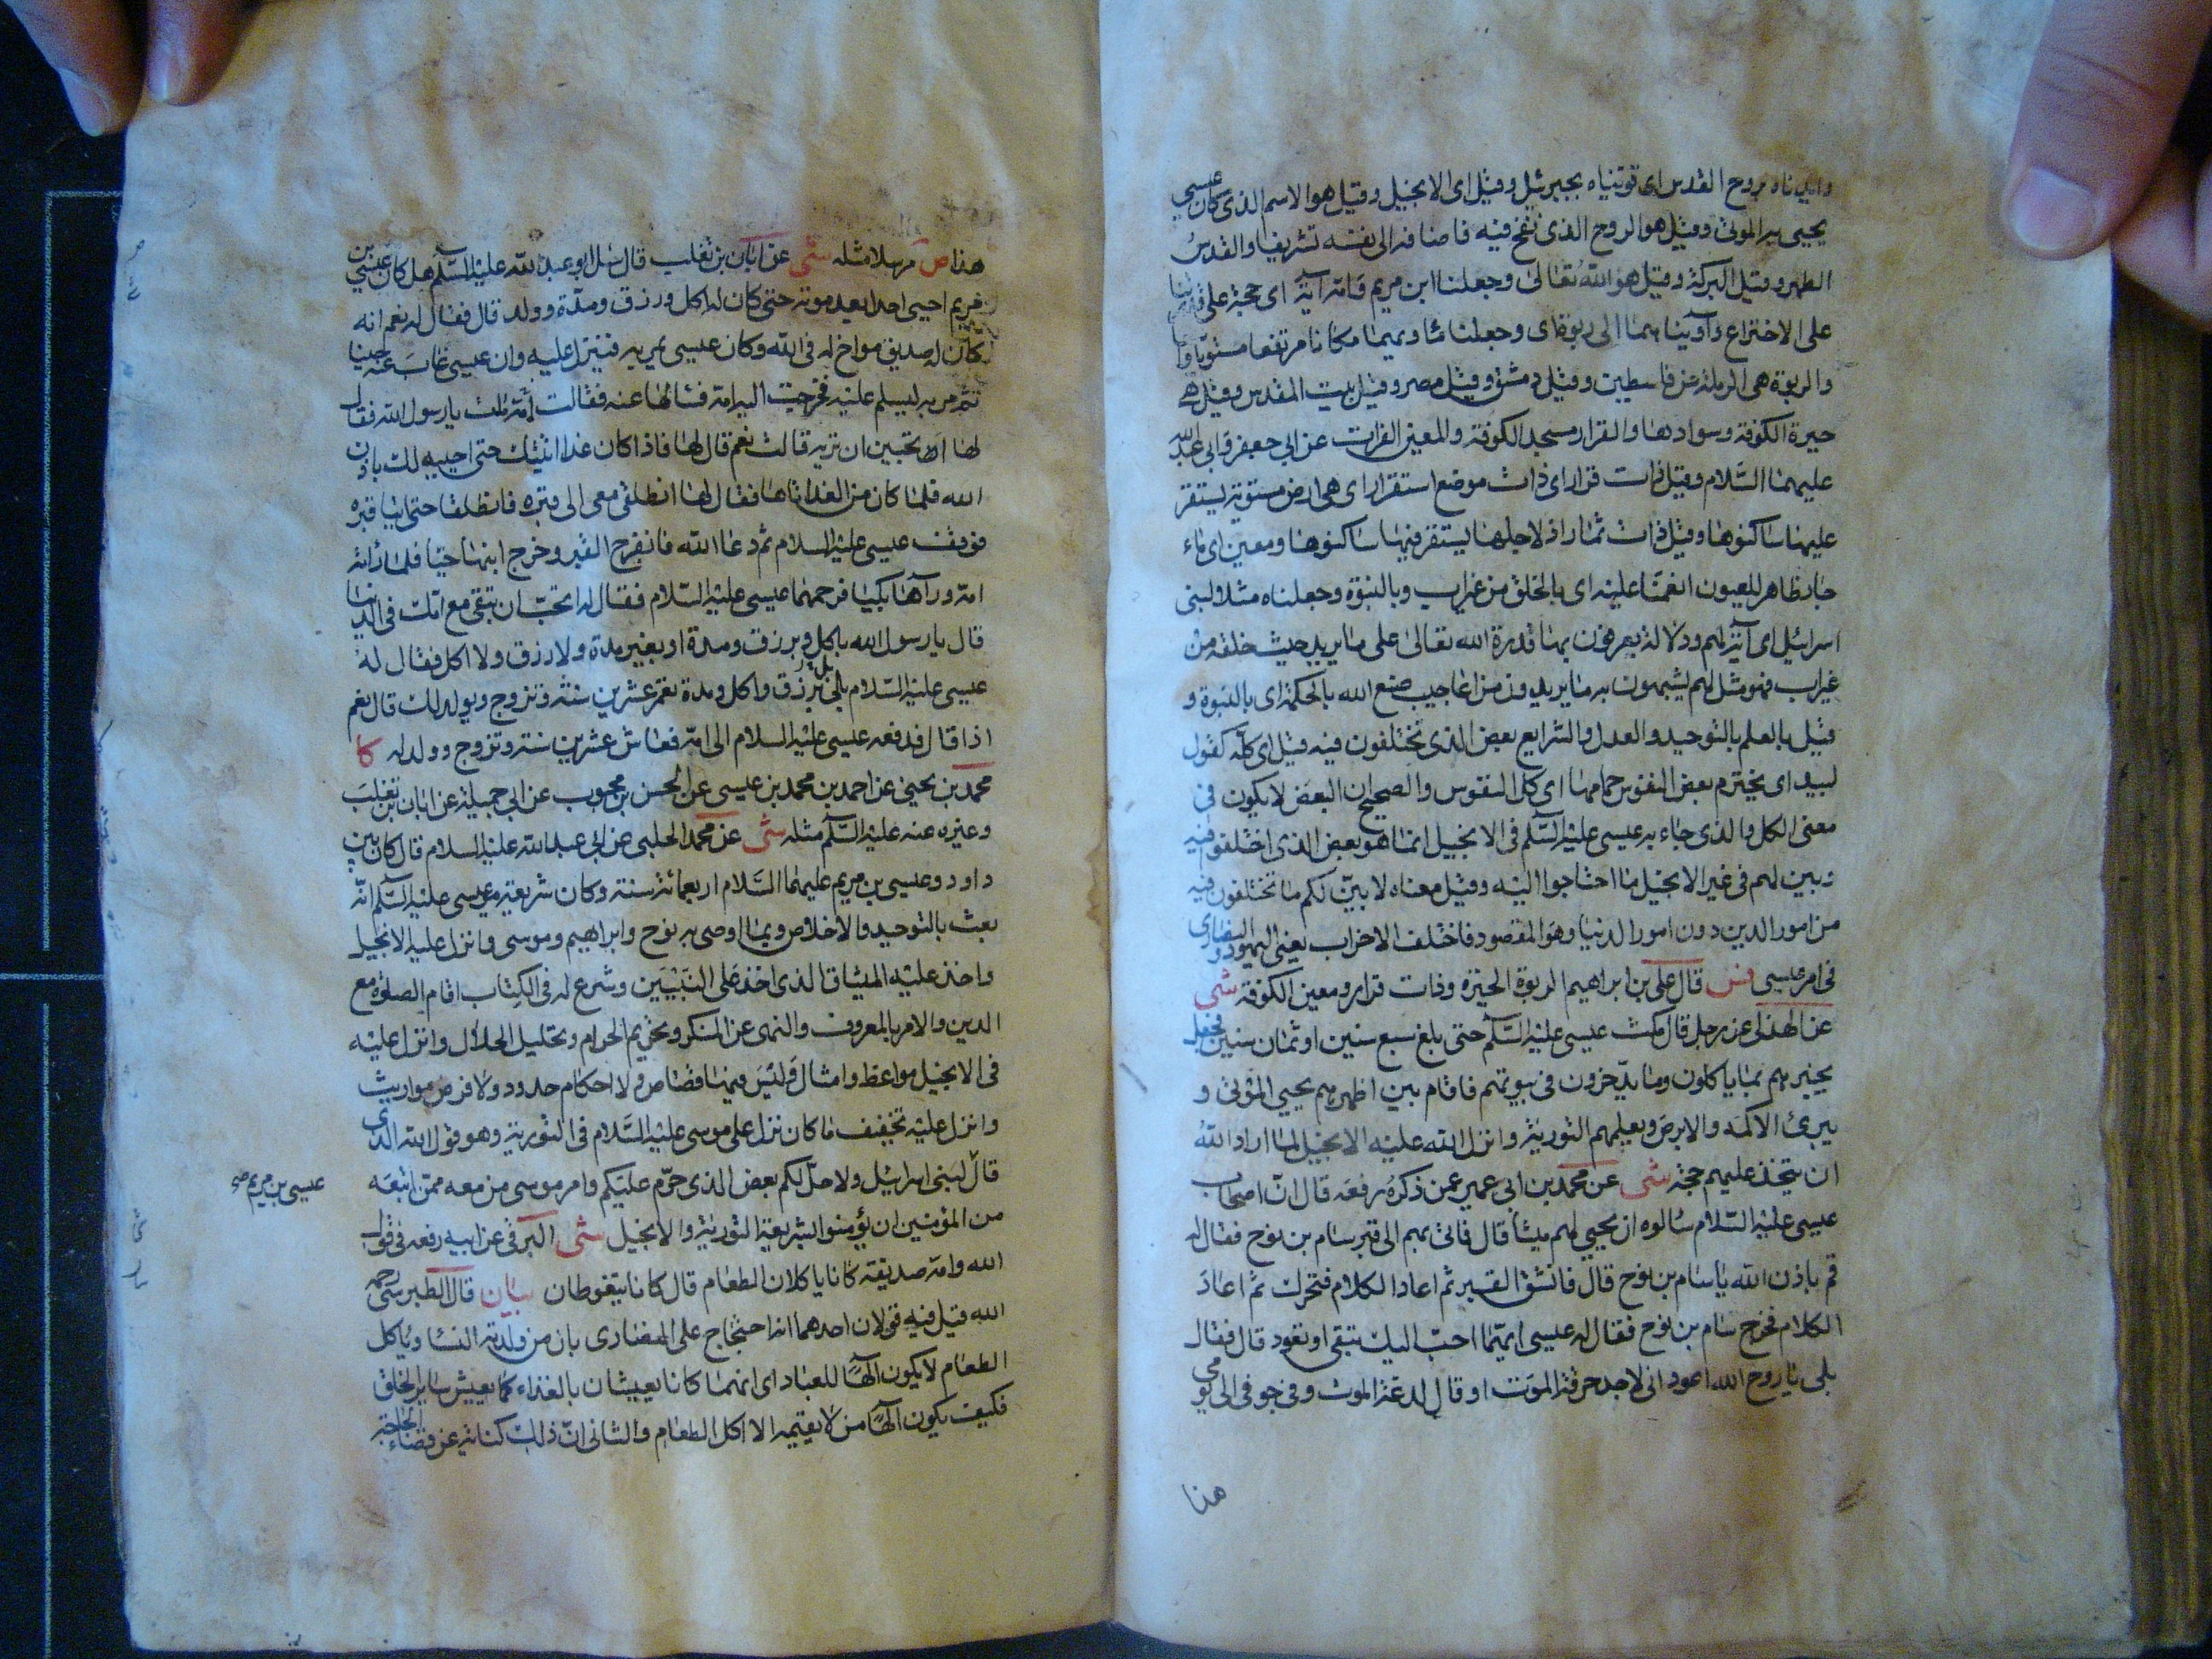 وايدناه بروح القدس اى قويناه بجبرئيل وقيل اى الانجيل وقيل هو الاسم الذى كان عيسى
يحيى به الموتى وقيل هو الروح الذى نفخ فيه فاضافه الى نفسه تشريفا والقدس
الطهر وقيل البركة وقيل هو الله تعالى وجعلنا ابن مريم وامه آية اى حجة على قدرتنا
على الاختراع وآويناهما الى ربوة اى وجعلنا مأويهما مكانا مرتفعا مستويا و
والربوة هى الرملة عن فلسطين وقيل دمشق وقيل مصر وقيل بيت المقدس وقيل هى
حيرة الكوفة وسوادها والقرار مسجد الكوفة والمعين الفرات عن ابى جعفر وابى عبد الله
عليهما السلام وقيل ذات قرار اى ذات موضع استقرار اى هى ارض مستوية يستقر
عليها ساكنوها وقيل ذات ثمار اذ لاجلها يستقر فيها ساكنوها ومعين اى ماء
جار ظاهر للعيون انعمنا عليه اى بالخلق من غير اب وبالنبوة وجعلناه مثلا لبنى
اسرائيل اى آية لهم ودلالة يعرفون بها قدرة الله تعالى على ما يريد حيث خلقه من
غير اب فهو مثل لهم يشبهون به ما يريدون من اعاجيب صنع الله بالحكمة اى بالنبوة و
قيل بالعلم بالتوحيد والعدل والشرايع بعض الذى تختلفون فيه قيل اى كله كقول
لبيد اى يخترم بعض النفوس حمامها اى كل النفوس والصحيح ان البعض لا يكون فى
معنى الكل والذى جاء به عيسى عليه السلم فى الانجيل انما هو بعض الذى اختلفوا فيه
وبين لهم فى غير الانجيل ما احتاجوا اليه وقيل معناه لابين لكم ما تختلفون فيه
من امور الدين دون امور الدنيا وهو المقصود فاختلف الاحزاب يعنى اليهود والنصارى
فى امر عيسى فس قال على بن ابراهيم الربوة الحيرة وذات قرار ومعين الكوفة شى
عن الهذلى عن رجل قال مكث عيسى عليه السلم حتى بلغ سبع سنين او ثمان سنين فجعل
يخبرهم بما ياكلون وما يدخرون فى بيوتهم فاقام بين اظهرهم يحيى الموتى و
يبرئ الاكمه والابرص ويعلمهم التورية وانزل الله عليه الانجيل لما اراد الله
ان يتخذ عليهم حجة شى عن محمد بن ابى عمير عمن ذكره رفعه قال ان اصحاب
عيسى عليه السلام سالوه ان يحيى لهم ميتا قال فاتى بهم الى قبر سام بن نوح فقال له
قم باذن الله يا سام بن نوح قال فانشق القبر ثم اعاد الكلام فتحرك ثم اعاد
الكلام فخرج سام بن نوح فقال له عيسى ايهما احب اليك تبقى او تعود قال فقال
بلى يا روح الله اعود انى لاجد حرقة الموت او قال لدغة الموت وفى جوفى الى يومى
هذا
هذا ص مرسلا مثله شى عن ابان بن تغلب قال سئل ابو عبد الله عليه السلم هل كان عيسى بن
مريم احيى احدا بعد موته حتى كان له اكل ورزق ومدة وولد قال فقال له نعم انه
كان له صديق مواخ له فى الله وكان عيسى يمر به فينزل عليه وان عيسى غاب عنه حينا
ثم مر به ليسلم عليه فخرجت اليه امه فسألها عنه فقالت امه مات يا رسول الله فقال
لها اتحبين ان تريه قالت نعم قال لها فاذا كان غدا اتيتك حتى احييه لك باذن
الله فلما كان من الغد اتاها فقال لها انطلقى معى الى قبره فانطلقا حتى اتيا قبره
فوقف عيسى عليه السلام ثم دعا الله فانفرج القبر وخرج ابنها حيا فلما رأته
امه ورآها بكيا فرحمهما عيسى عليه السلام فقال له اتحب ان تبقى مع امك فى الدنيا
قال يا رسول الله باكل وبرزق ومدة او بغير مدة ولا رزق ولا اكل فقال له
عيسى عليه السلام بلى برزق واكل ومدة تعمر عشرين سنة وتزوج ويولد لك قال نعم
اذا قال فدفعه عيسى عليه السلام الى امه فعاش عشرين سنة وتزوج وولد له كا
محمد بن يحيى عن احمد بن محمد بن عيسى عن الحسن بن محبوب عن ابى جميلة عن ابان بن تغلب
وغيره عنه عليه السلم مثله شى عن محمد الحلبى عن ابى عبد الله عليه السلام قال كان بين
داود وعيسى بن مريم عليهما السلام اربعمائة سنة وكان شريعة عيسى عليه السلم انه
بعث بالتوحيد والاخلاص وبما اوصى به نوح وابراهيم وموسى وانزل عليه الانجيل
واخذ عليه الميثاق الذى اخذ على النبيين وشرع له فى الكتاب اقام الصلوة مع
الدين والامر بالمعروف والنهى عن المنكر وتحريم الحرام وتحليل الحلال وانزل عليه
فى الانجيل مواعظ وامثال وليس فيها قصاص ولا احكام حدود ولا فرض مواريث
وانزل عليه تخفيف ما كان نزل على موسى عليه السلام فى التورية وهو قول الله الذى
قال لبنى اسرائيل ولاحل لكم بعض الذى حرم عليكم وامر موسى من معه ممن اتبعه
عيسى بن مريم صح
من المؤمنين ان يؤمنوا بشريعة التورية والانجيل شى البرقى عن ابيه رفعه فى قول
الله وامه صديقة كانا ياكلان الطعام قال كانا يتغوطان بيان قال الطبرسى رحمه
الله قيل فيه قولان احدهما انه احتجاج على النصارى بان من ولدته النسا وياكل
الطعام لا يكون الها للعباد اى انهما كانا يعيشان بالغذاء كما يعيش ساير الخلق
فكيف يكون الها من لا يقيمه الا اكل الطعام والثانى ان ذلك كناية عن قضاء الحاجة